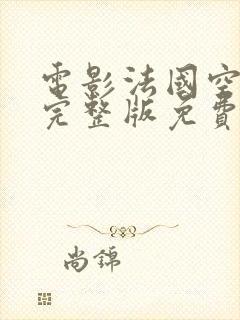 電影法國空
完整版免費
尚錦